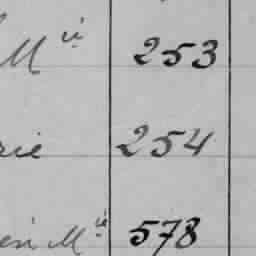 Mie 253
rie 254
en Mie 578